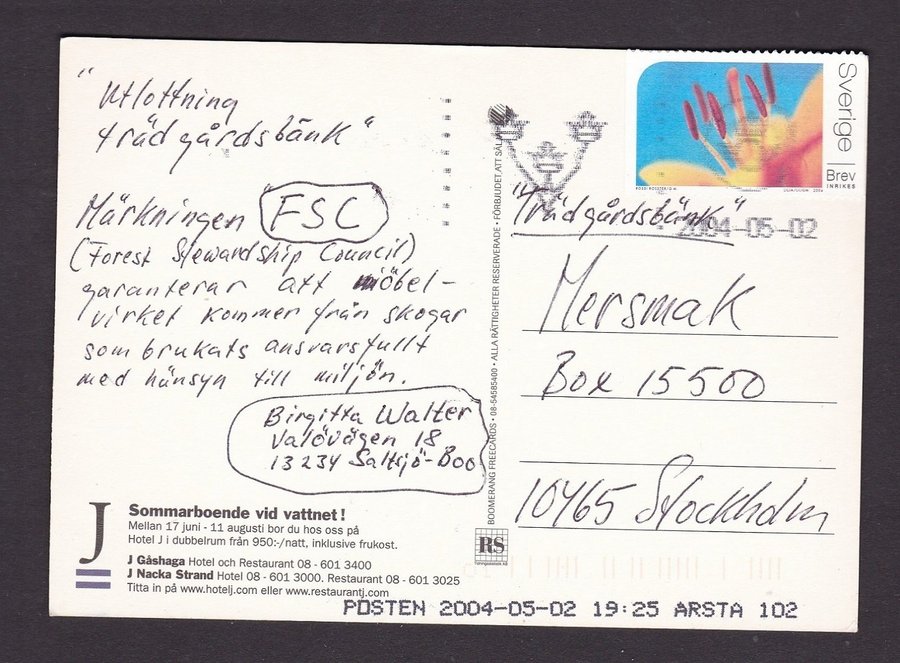 "Utlottning
trädgårdsbänk"
Märkningen FSC
(Forest Stewardship Council)
garanterar att möbel-
virket kommer från skogar
som brukats ansvarsfullt
med hänsyn till miljön.
Birgitta Walter
Valövägen 18
13234 Saltsjö-Boo
J
Sommarboende vid vattnet!
Mellan 17 juni - 11 augusti bor du hos oss på
Hotel J i dubbelrum från 950:-/natt, inklusive frukost.
J Gåshaga Hotel och Restaurant 08 - 601 3400
J Nacka Strand Hotel 08 - 601 3000. Restaurant 08 - 601 3025
Titta in på www.hotelj.com eller www.restaurantj.com
BOOMERANG FREECARDS • 08-54585400 • ALLA RÄTTIGHETER RESERVERADE • FÖRBJUDET ATT SÄLJ
RS
Sverige
Brev
INRIKES
2004
2004-05-02
"Trädgårdsbänk"
Mersmak
Box 15500
10465 Stockholm
POSTEN 2004-05-02 19:25 ARSTA 102